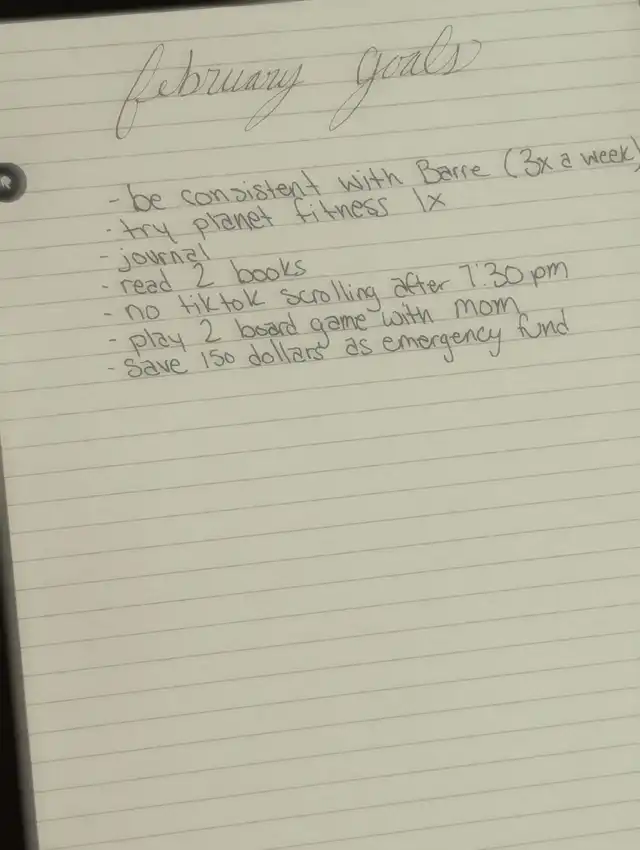 february goals
- be consistent with Barre (3x a week)
- try planet fitness 1x
- journal
- read 2 books
- no tiktok scrolling after 7:30 pm
- play 2 board game with mom
- save 150 dollars as emergency fund